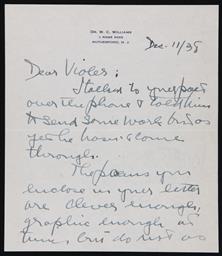 DR. W. C. WILLIAMS
9 RIDGE ROAD
RUTHERFORD, N. J.
Dec. 11/38
Dear Violet;
I talked to your poet
over the phone & told him
to send some work but as
yet he hasn't come
through.
The poems you
enclose in your letter
are clever enough,
graphic enough at
times, but do not as